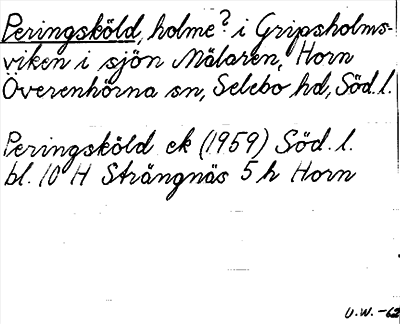 Peringsköld, holme? i Gripsholms-
viken i sjön Mälaren, Horn
Överenhörna sn, Selebo hd, Söd. l.
Peringsköld ek (1959) Söd. l.
bl. 10 H Strängnäs 5 h Horn
U.W. -62